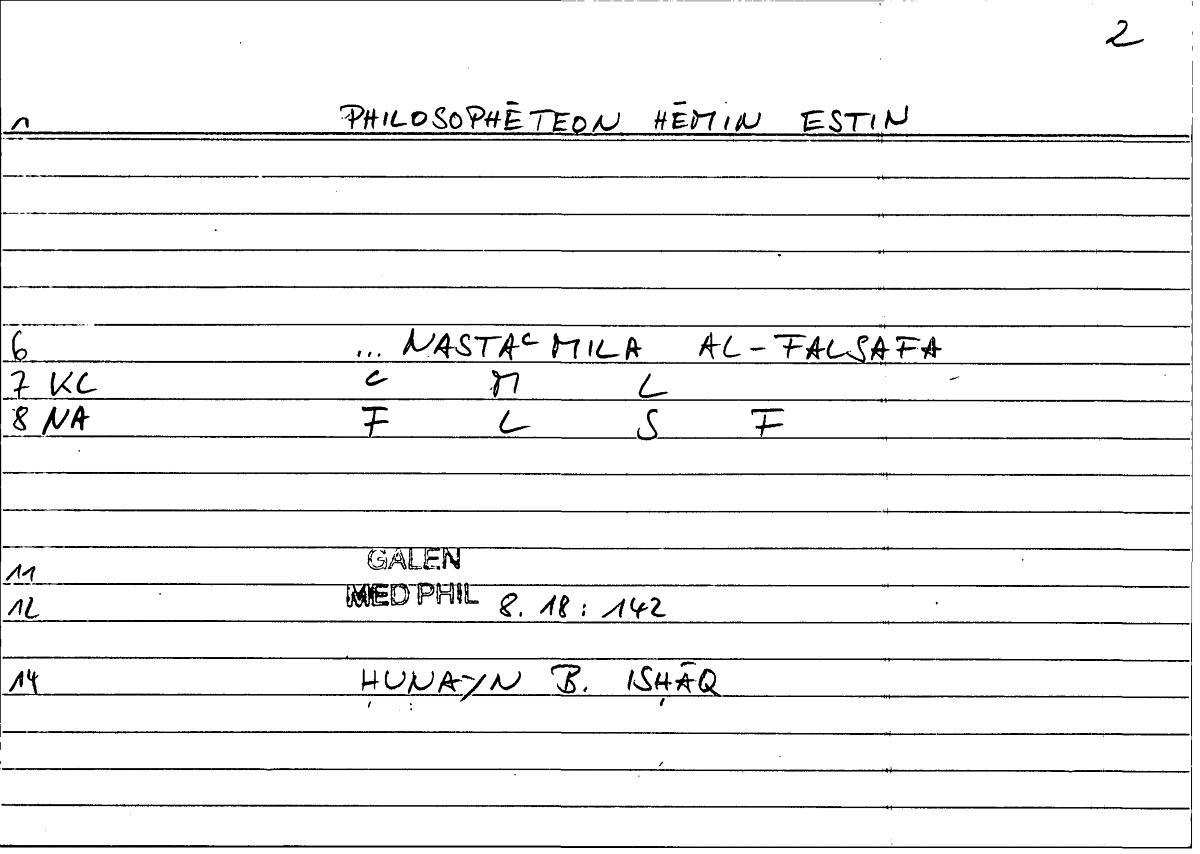 2
1 PHILOSOPHĒTEON HĒMIN ESTIN
6 ... NASTAᶜMILA AL-FALSAFA
7 KC ᶜ M L
8 NA F L S F
11 GALEN
12 MED PHIL 8. 18 : 142
14 ḤUNAYN B. ISḤĀQ